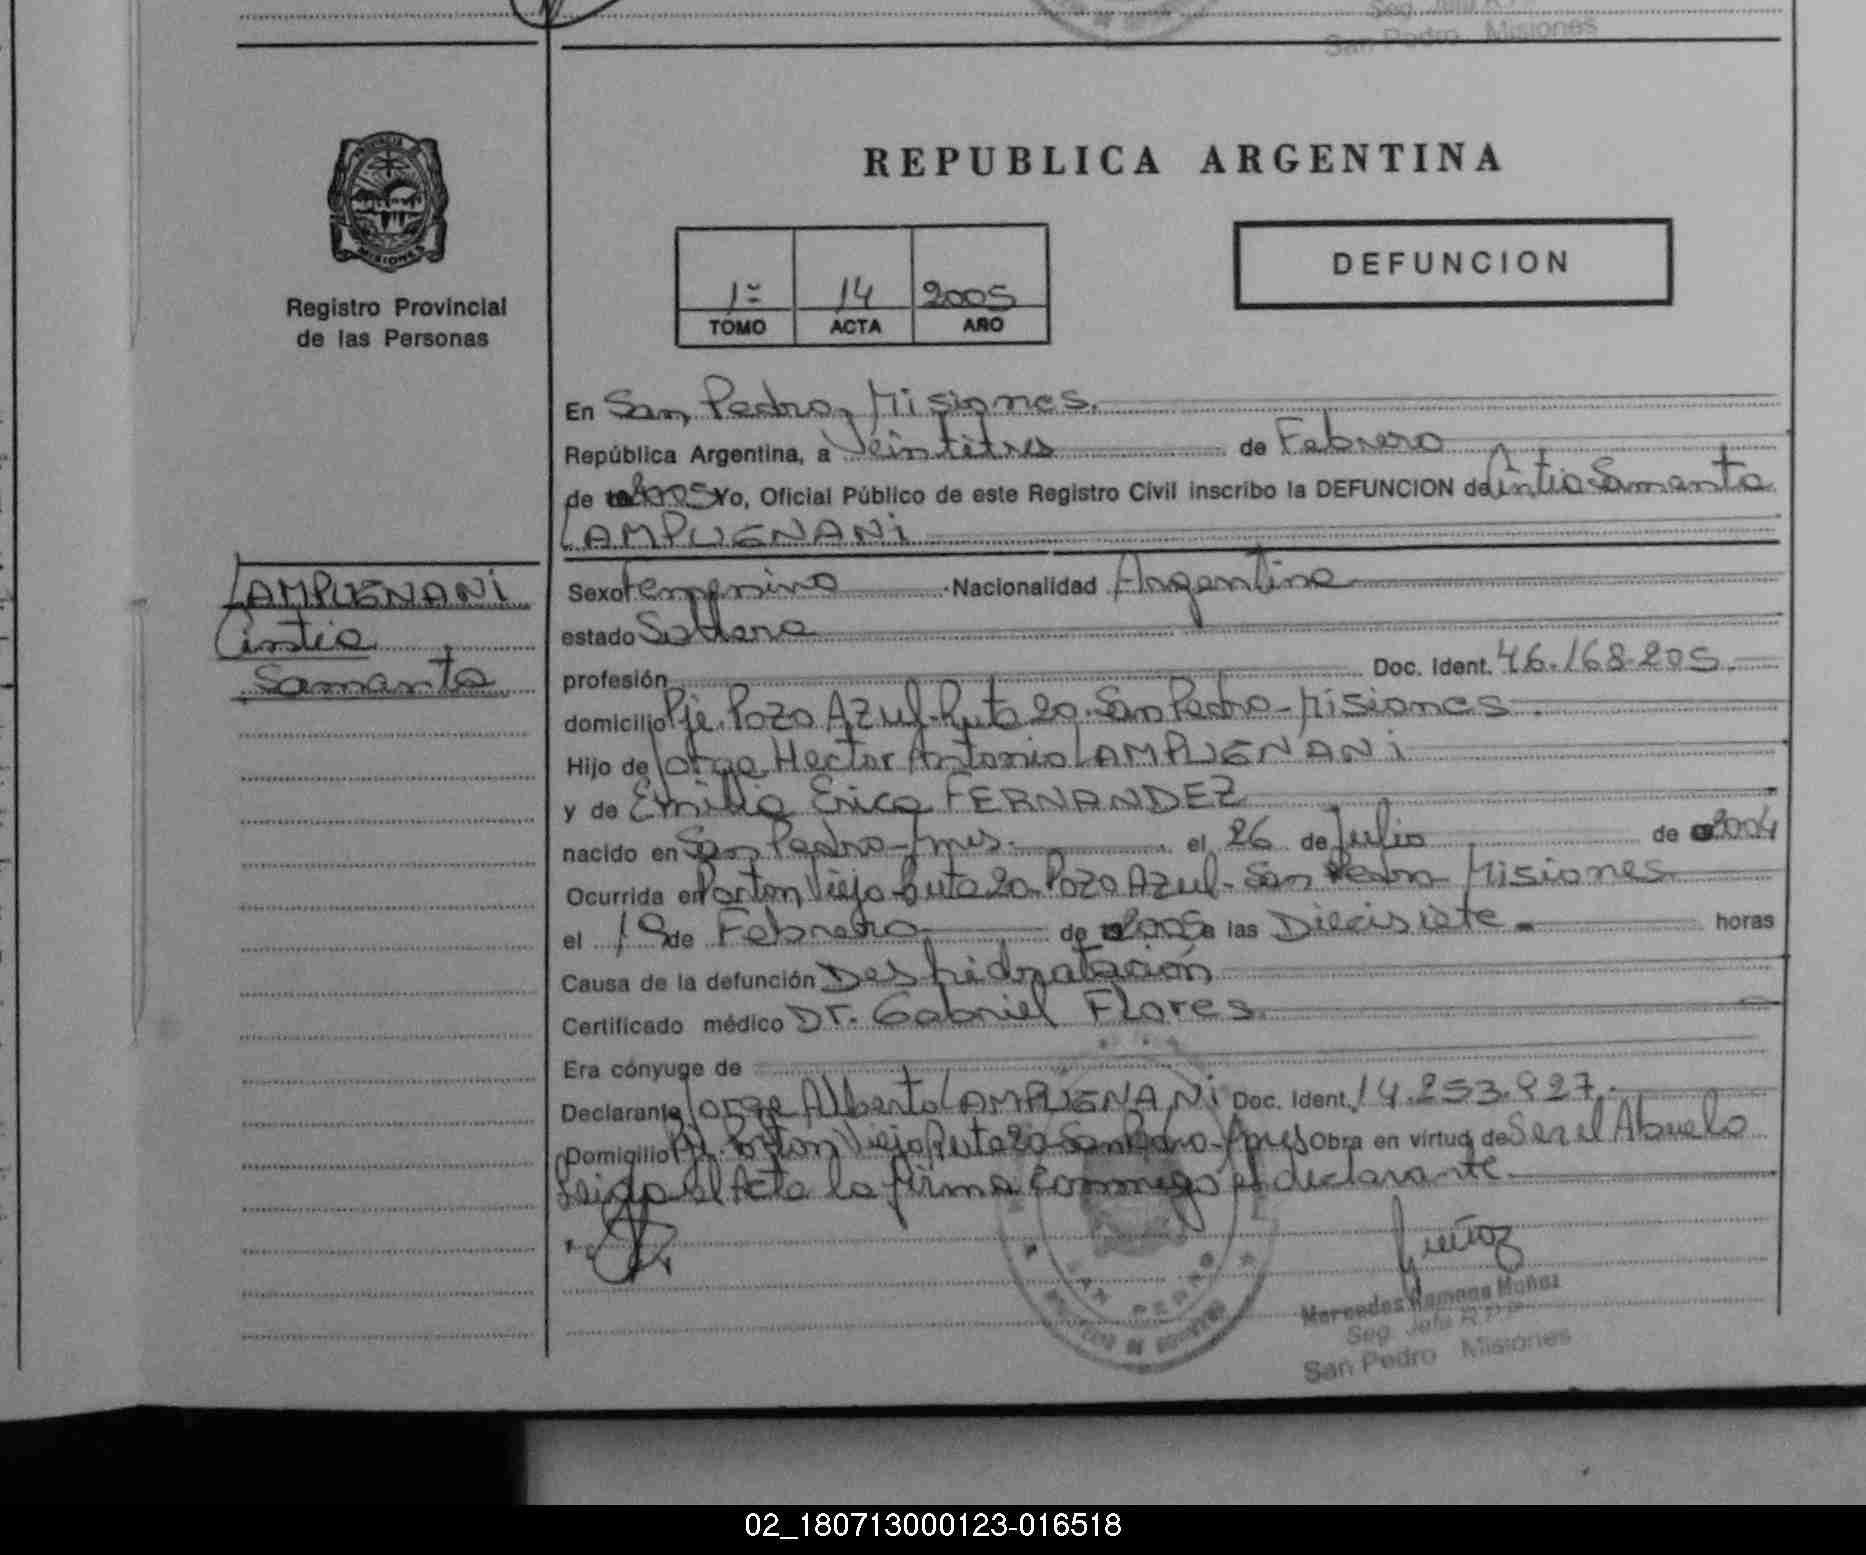 Seg. Jefa R.P.P.
San Pedro Misiones
PROVINCIA
MISIONES
Registro Provincial
de las Personas
REPUBLICA ARGENTINA
1º 14 2005
TOMO ACTA AÑO
DEFUNCION
En San Pedro, Misiones.
República Argentina, a Veintitres de Febrero
de 2005 Yo, Oficial Público de este Registro Civil inscribo la DEFUNCION de Cintia Samanta
LAMPUGNANI
LAMPUGNANI
Cintia
Samanta
Sexo femenino Nacionalidad Argentina
estado Soltera
profesión Doc. Ident. 46.168.205.
domicilio Pje. Pozo Azul-Ruta 20-San Pedro-Misiones.
Hijo de Jorge Hector Antonio LAMPUGNANI
y de Emilia Erica FERNANDEZ
nacido en San Pedro-Mnes. el 26 de Julio de 2004
Ocurrida en Porton Viejo Ruta 20-Pozo Azul-San Pedro Misiones
el 19 de Febrero de 2005 a las Diecisiete. horas
Causa de la defunción Deshidratación
Certificado médico Dr. Gabriel Flores
Era cónyuge de
Declarante Jorge Alberto LAMPUGNANI Doc. Ident. 14.253.927.
Domicilio Pje. Porton Viejo Ruta 20-San Pedro-Mnes Obra en virtud de Ser el Abuelo
Leida el Acta la firma conmigo el declarante.
Muñoz
Mercedes Ramona Muñoz
Seg. Jefa R.P.P.
San Pedro Misiones
SAN PEDRO
MINISTERIO DE GOBIERNO
02_180713000123-016518